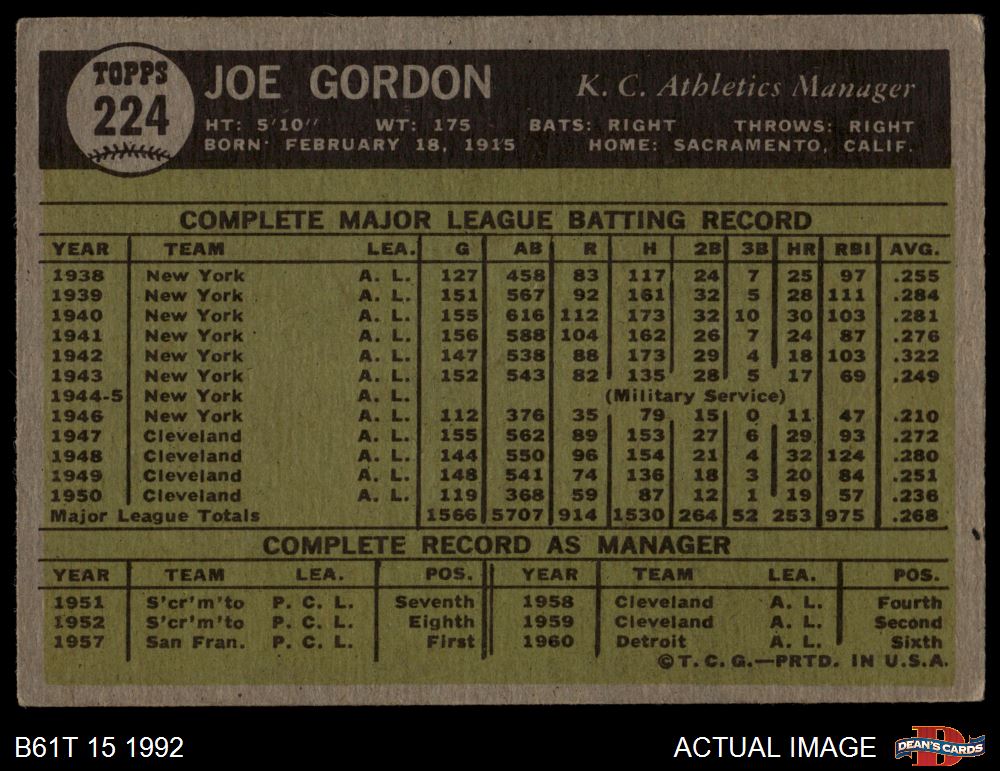 TOPPS
224
JOE GORDON K. C. Athletics Manager
HT: 5'10" WT: 175 BATS: RIGHT THROWS: RIGHT
BORN: FEBRUARY 18, 1915 HOME: SACRAMENTO, CALIF.
COMPLETE MAJOR LEAGUE BATTING RECORD
YEAR TEAM LEA. G AB R H 2B 3B HR RBI AVG.
1938 New York A. L. 127 458 83 117 24 7 25 97 .255
1939 New York A. L. 151 567 92 161 32 5 28 111 .284
1940 New York A. L. 155 616 112 173 32 10 30 103 .281
1941 New York A. L. 156 588 104 162 26 7 24 87 .276
1942 New York A. L. 147 538 88 173 29 4 18 103 .322
1943 New York A. L. 152 543 82 135 28 5 17 69 .249
1944-5 New York A. L. (Military Service)
1946 New York A. L. 112 376 35 79 15 0 11 47 .210
1947 Cleveland A. L. 155 562 89 153 27 6 29 93 .272
1948 Cleveland A. L. 144 550 96 154 21 4 32 124 .280
1949 Cleveland A. L. 148 541 74 136 18 3 20 84 .251
1950 Cleveland A. L. 119 368 59 87 12 1 19 57 .236
Major League Totals 1566 5707 914 1530 264 52 253 975 .268
COMPLETE RECORD AS MANAGER
YEAR TEAM LEA. POS. YEAR TEAM LEA. POS.
1951 S'cr'm'to P. C. L. Seventh 1958 Cleveland A. L. Fourth
1952 S'cr'm'to P. C. L. Eighth 1959 Cleveland A. L. Second
1957 San Fran. P. C. L. First 1960 Detroit A. L. Sixth
©T. C. G.—PRTD. IN U.S.A.
B61T 15 1992 ACTUAL IMAGE D DEAN'S CARDS